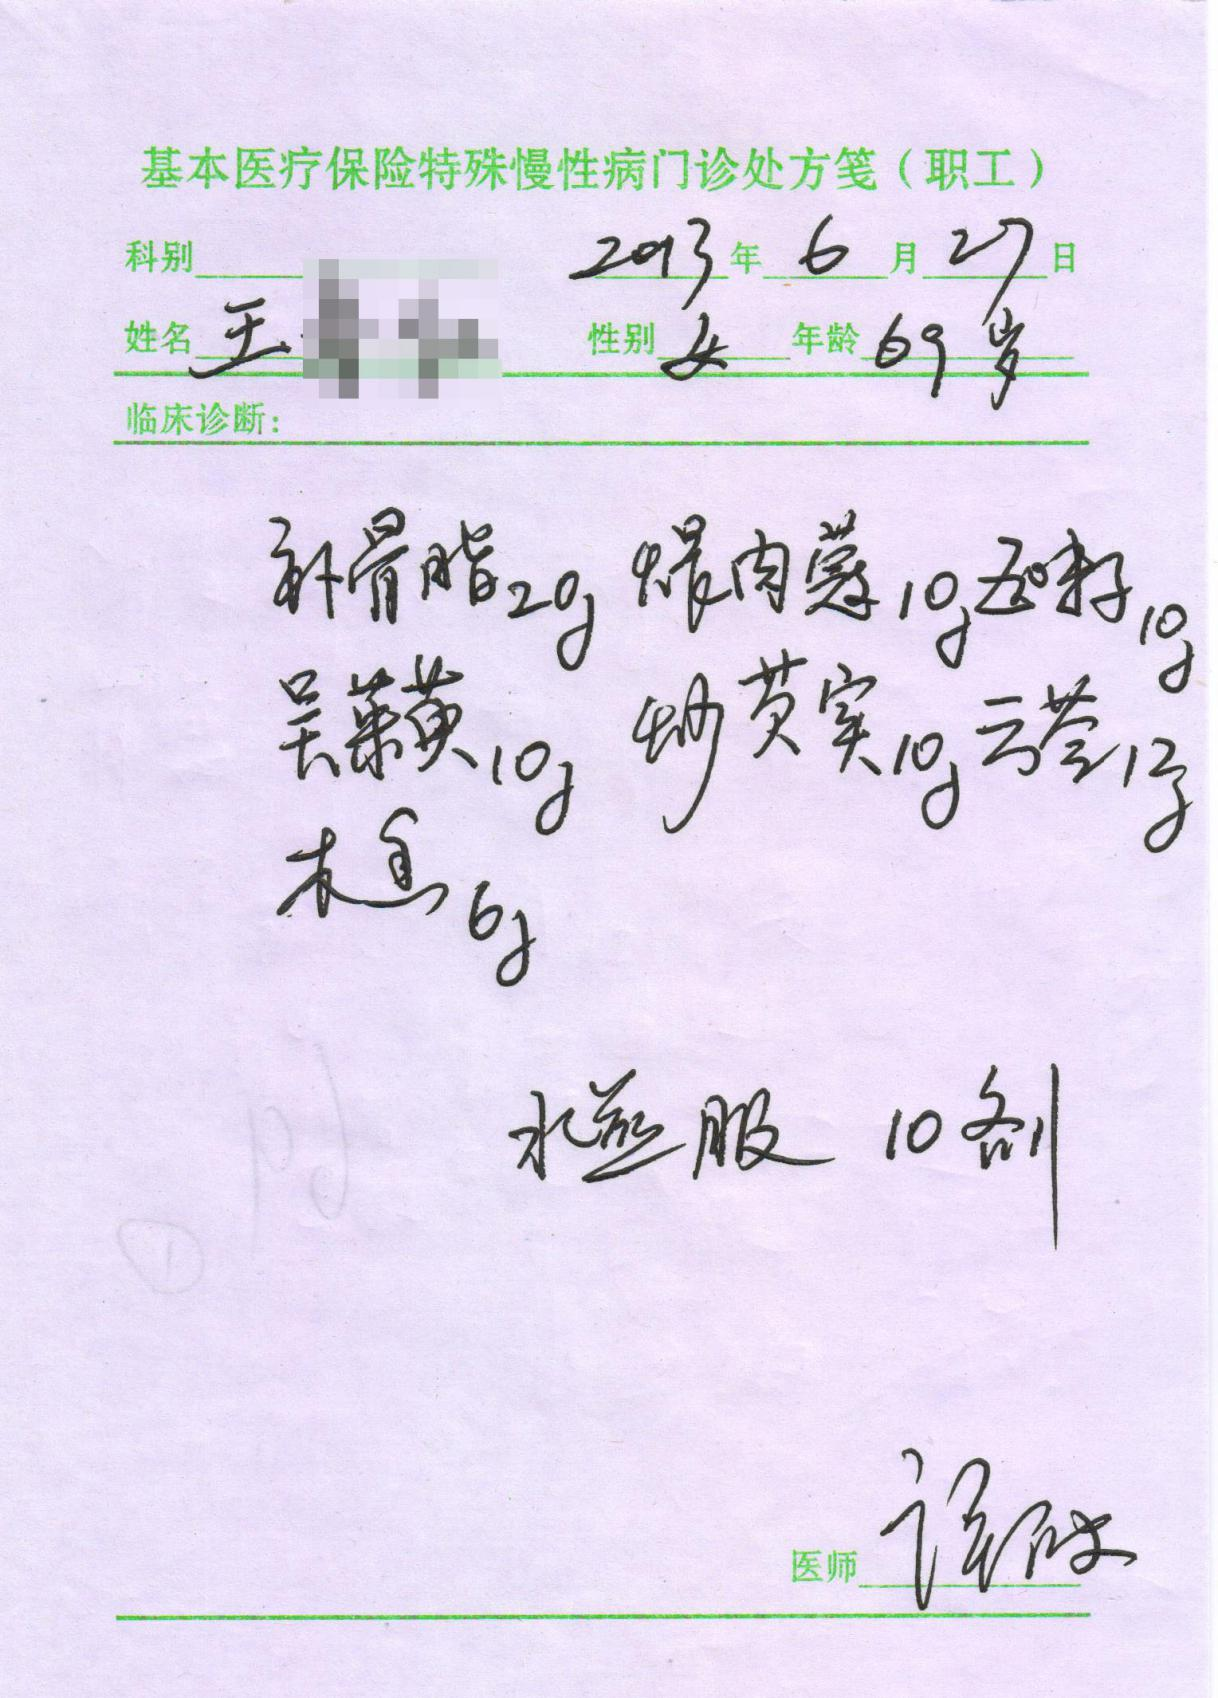 基本医疗保险特殊慢性病门诊处方笺（职工）
科别 2013年 6月 27日
姓名 王 性别 女 年龄 69岁
临床诊断：
补骨脂20g 煨肉蔻10g 五味子10g
吴茱萸10g 炒芡实10g 云苓12g
木香6g
水煎服 10剂
医师